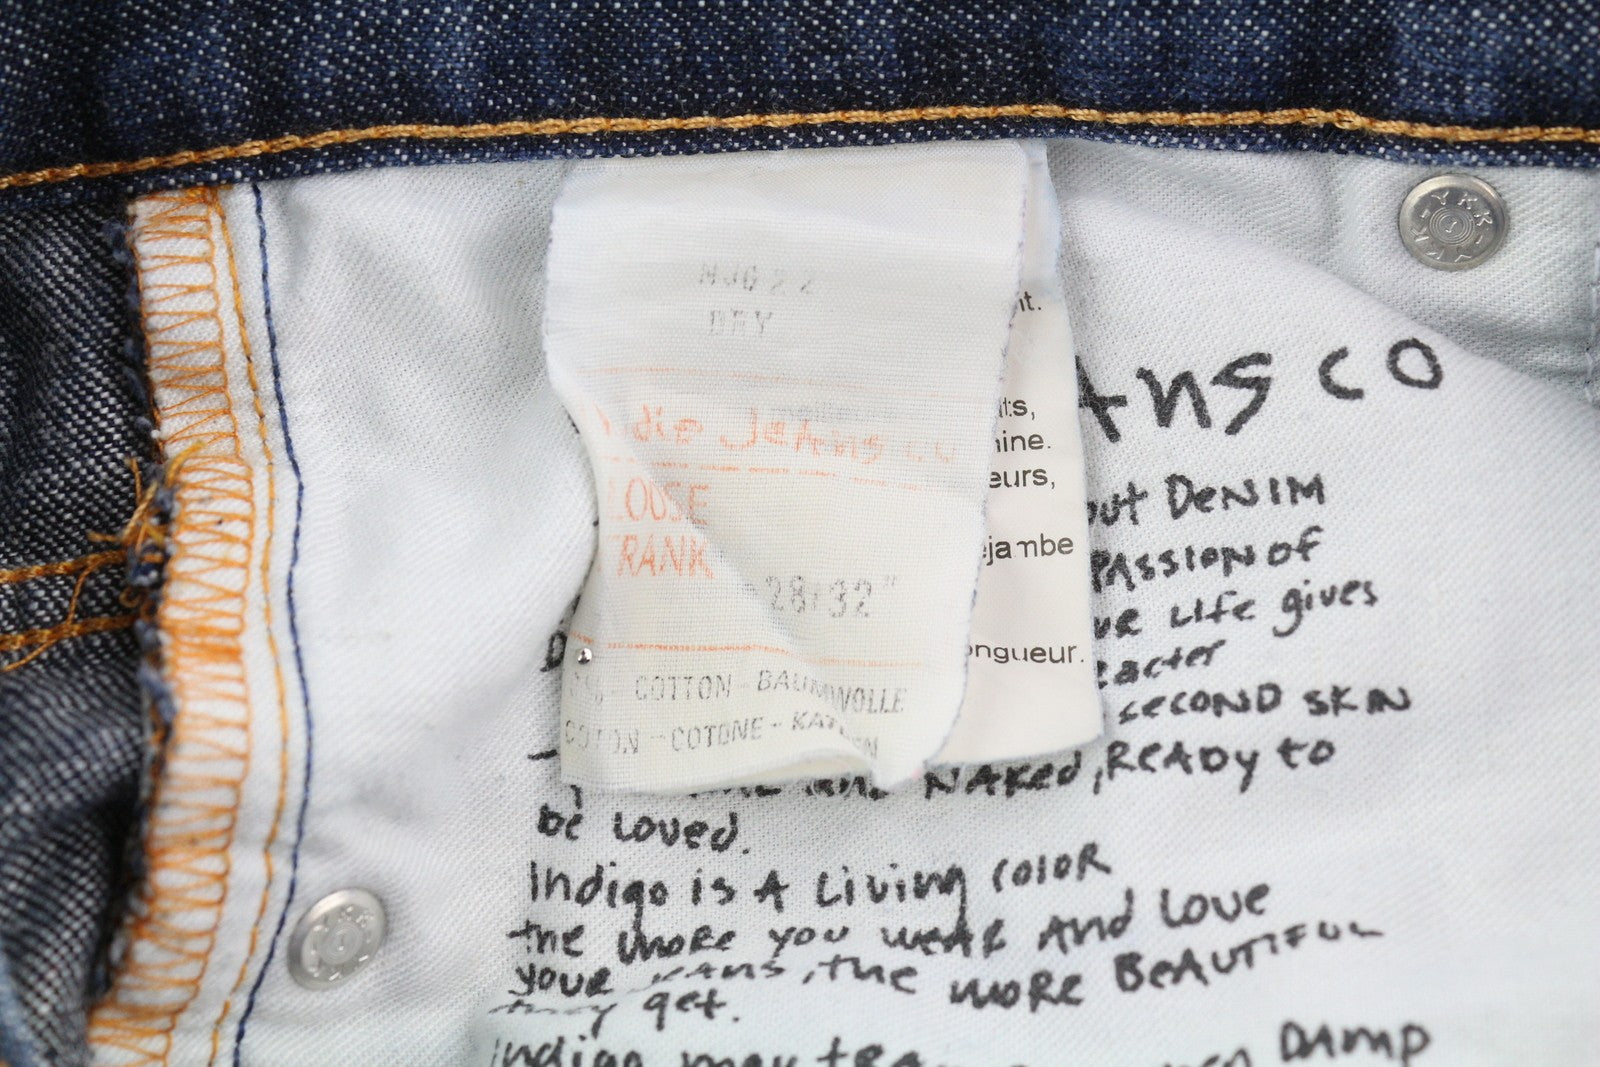 NJ622
DRY
udie Jeans co
LOOSE
FRANK
28/32"
COTTON - BAUMWOLLE
COTON - COTONE - KATOEN
it.
its,
ine.
eurs,
ejambe
ongueur.
YKK
eans co
out Denim
passion of
ur life gives
racter
second skin
naked, ready to
be loved.
Indigo is a living color
the more you wear and love
your jeans, the more beautiful
they get.
Indigo may
damp
YKK